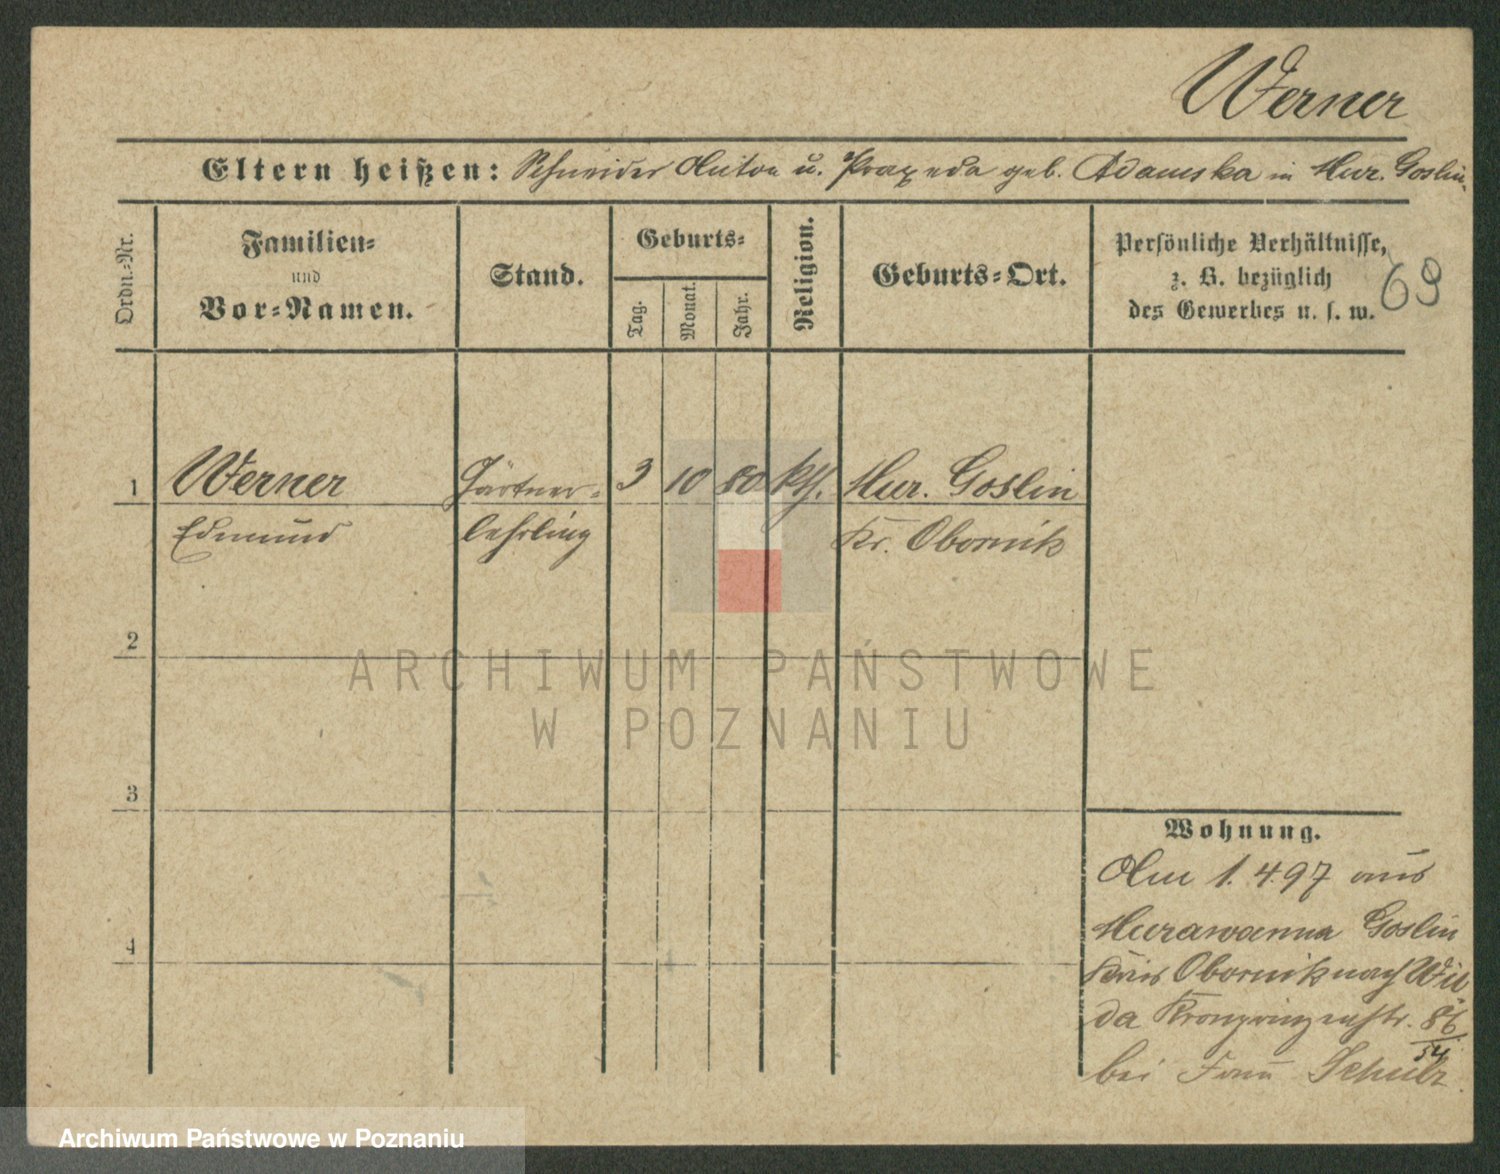 Werner
Eltern heißen: Schneider Anton u. Praxeda geb. Adamska in Mur. Goslin.
Ordn.-Nr.
Familien-
und
Vor-Namen.
Stand.
Geburts-
Tag.
Monat.
Jahr.
Religion.
Geburts-Ort.
Persönliche Verhältnisse,
z. B. bezüglich
des Gewerbes u. s. w.
69
1 Werner Gärtner- 3 10 80 kth. Mur. Goslin
Edmund lehrling Kr. Obornik
2
ARCHIWUM PAŃSTWOWE
W POZNANIU
3
Wohnung.
Am 1.4.97 aus
Murawanna Goslin
Kreis Obornik nach Wil
4
da Kronprinzenstr. 86
bei Frau Schulz
Archiwum Państwowe w Poznaniu